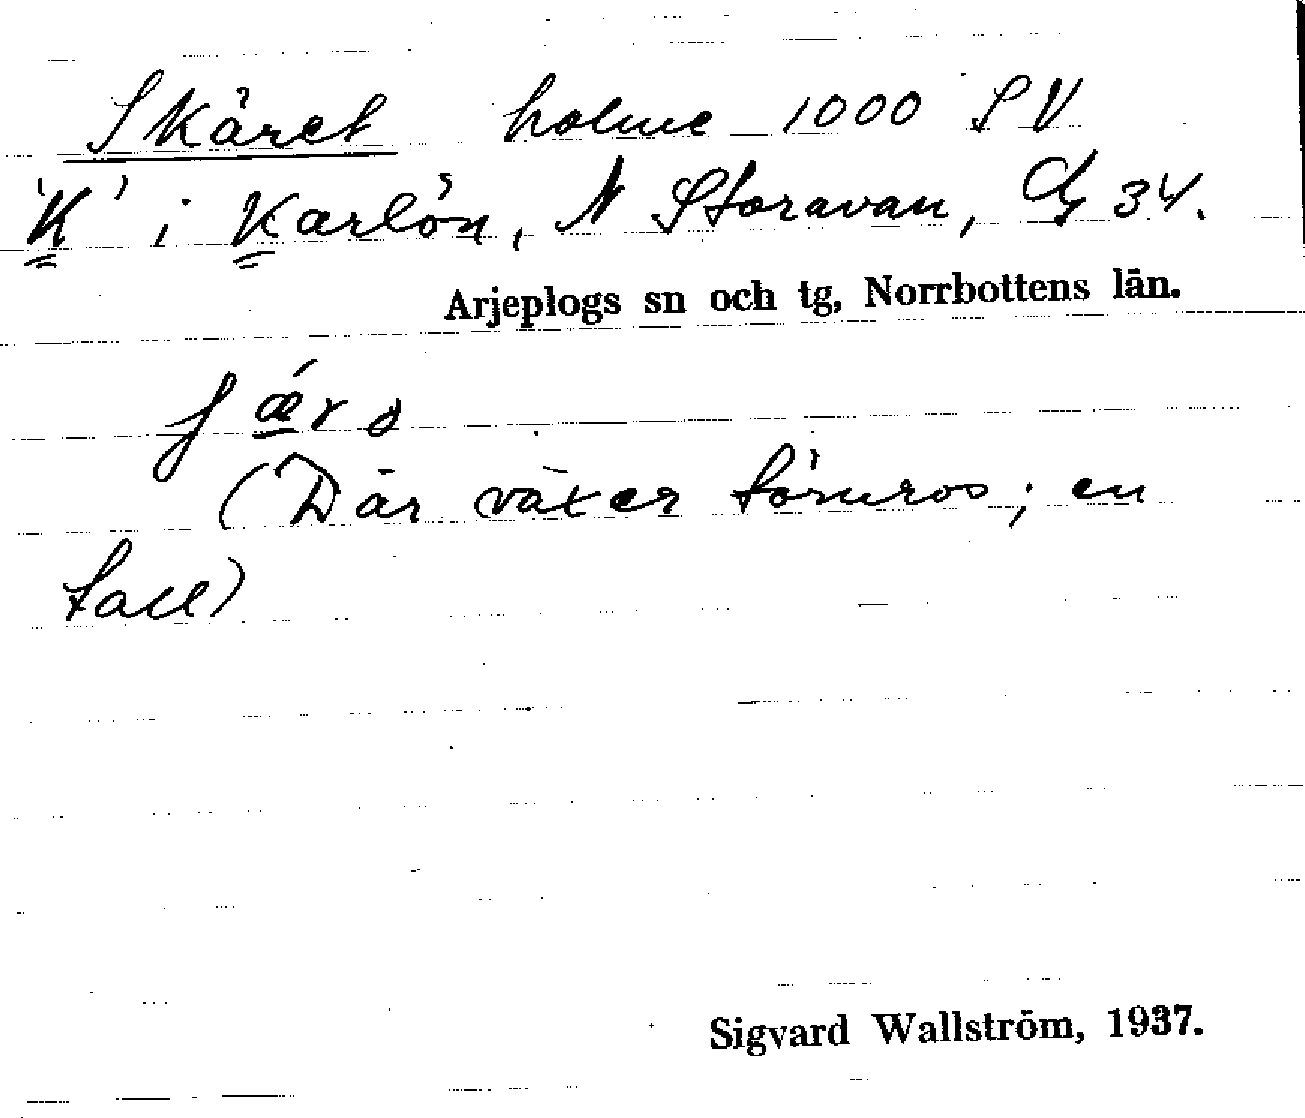 Skäret holme 1000 SV
"K" i Karlön, N Storavan, Gf 34.
Arjeplogs sn och tg, Norrbottens län.
ʃǽrə
(Där växer törnros; en
tall)
Sigvard Wallström, 1937.